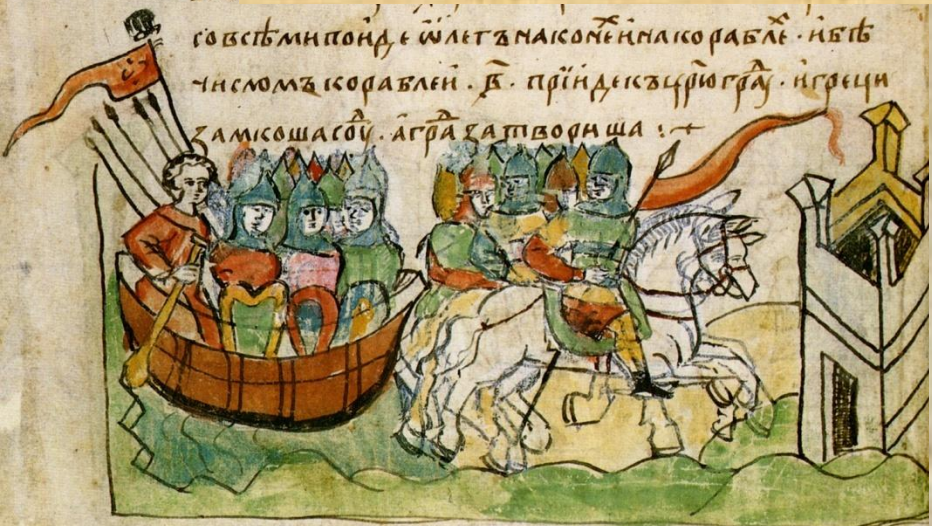 со всѣми поиде ѡлегъ на конеⷯ и на кораблеⷯ · и бѣ
числомъ кораблеи · в҃ · прїиде къ цр҃юграⷣу · и греци
замкоша соуⷣ · а граⷣ затвориша :+